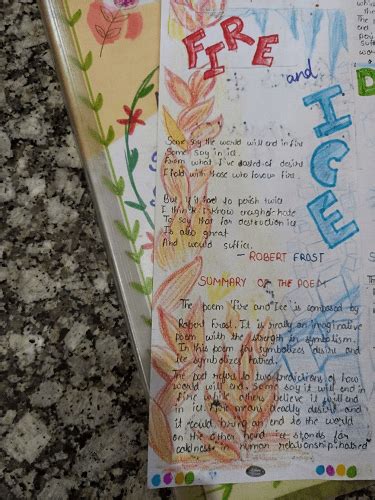 FIRE
and
ICE
Some say the world will end in fire
Some say in ice
From what I've tasted of desire
I fold with those who favour fire
But if it had to perish twice
I think I know enough of hate
To say that for destruction ice
Is also great
And would suffice.
- ROBERT FROST
SUMMARY OF THE POEM
The poem 'Fire and Ice' is composed by
Robert Frost. It is really an imaginative
poem with the strength in symbolism.
In this poem fire symbolizes desire and
Ice symbolizes hatred.
The poet refers to two predictions of how
world will end. Some say it will end in
fire while others believe it will end
in ice. Fire means deadly desire and
it could bring an end to the world
on the other hand ice stands for
coldness in human relationship, hatred